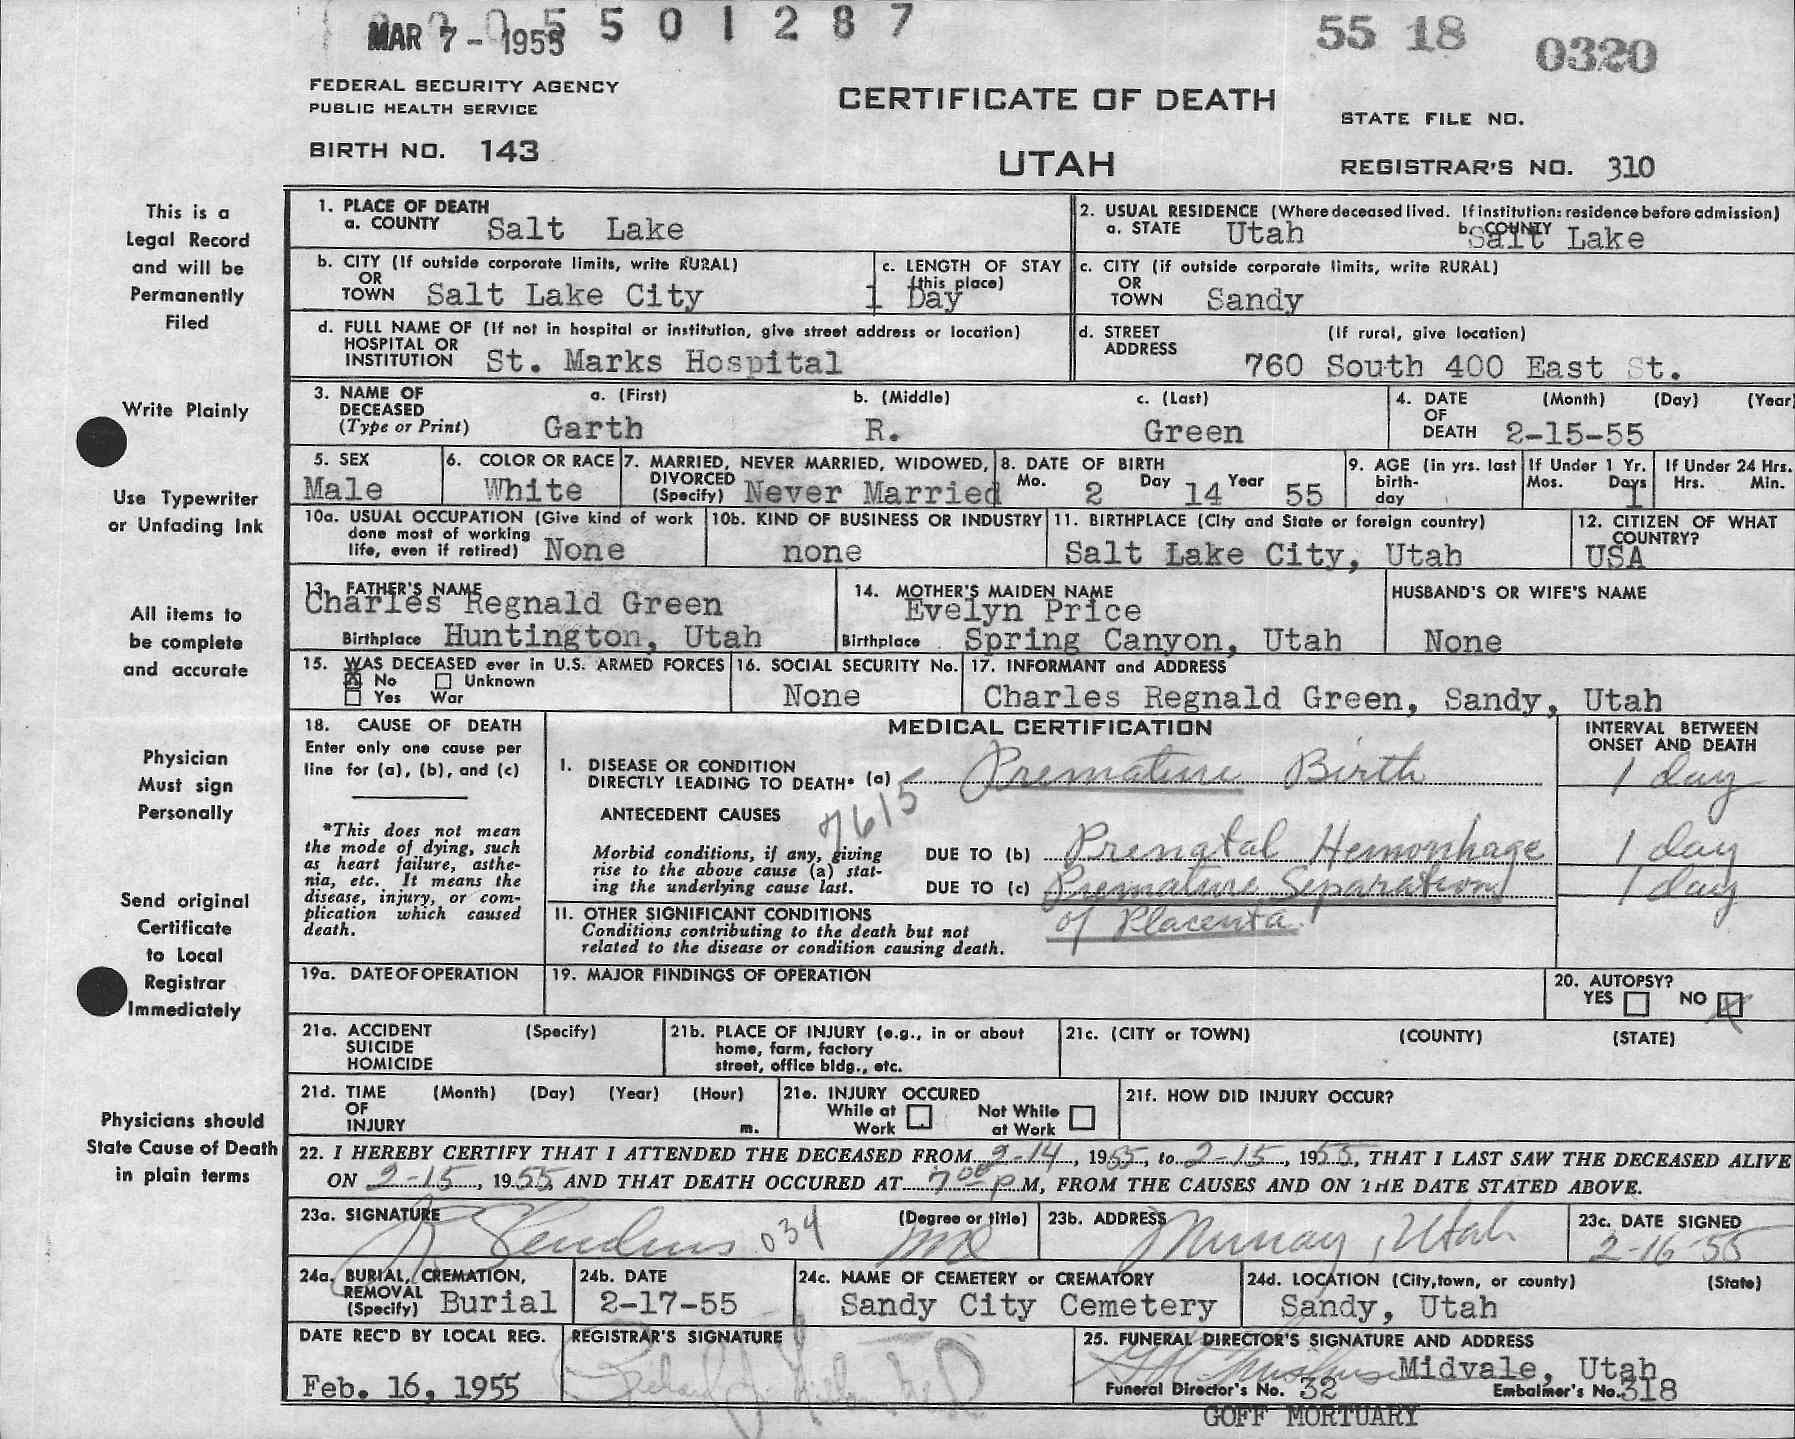 MAR 7 - 1955 5 5 0 1 2 8 7
55 18 0320
FEDERAL SECURITY AGENCY
PUBLIC HEALTH SERVICE
CERTIFICATE OF DEATH
STATE FILE NO.
BIRTH NO. 143
UTAH
REGISTRAR'S NO. 310
This is a
Legal Record
and will be
Permanently
Filed
Write Plainly
Use Typewriter
or Unfading Ink
All items to
be complete
and accurate
Physician
Must sign
Personally
Send original
Certificate
to Local
Registrar
Immediately
Physicians should
State Cause of Death
in plain terms
1. PLACE OF DEATH
a. COUNTY Salt Lake
2. USUAL RESIDENCE (Where deceased lived. If institution: residence before admission)
a. STATE Utah b. COUNTY Salt Lake
b. CITY (If outside corporate limits, write RURAL)
OR
TOWN Salt Lake City
c. LENGTH OF STAY
(this place)
1 Day
c. CITY (if outside corporate limits, write RURAL)
OR
TOWN Sandy
d. FULL NAME OF (If not in hospital or institution, give street address or location)
HOSPITAL OR
INSTITUTION St. Marks Hospital
d. STREET (If rural, give location)
ADDRESS 760 South 400 East St.
3. NAME OF a. (First) b. (Middle) c. (Last)
DECEASED
(Type or Print) Garth R. Green
4. DATE (Month) (Day) (Year)
OF
DEATH 2-15-55
5. SEX
Male
6. COLOR OR RACE
White
7. MARRIED, NEVER MARRIED, WIDOWED,
DIVORCED
(Specify) Never Married
8. DATE OF BIRTH
Mo. 2 Day 14 Year 55
9. AGE (in yrs. last
birth-
day
If Under 1 Yr.
Mos. Days
1
If Under 24 Hrs.
Hrs. Min.
10a. USUAL OCCUPATION (Give kind of work
done most of working
life, even if retired) None
10b. KIND OF BUSINESS OR INDUSTRY
none
11. BIRTHPLACE (City and State or foreign country)
Salt Lake City, Utah
12. CITIZEN OF WHAT
COUNTRY?
USA
13. FATHER'S NAME
Charles Regnald Green
Birthplace Huntington, Utah
14. MOTHER'S MAIDEN NAME
Evelyn Price
Birthplace Spring Canyon, Utah
HUSBAND'S OR WIFE'S NAME
None
15. WAS DECEASED ever in U.S. ARMED FORCES
X No Unknown
Yes War
16. SOCIAL SECURITY No.
None
17. INFORMANT and ADDRESS
Charles Regnald Green, Sandy, Utah
18. CAUSE OF DEATH
Enter only one cause per
line for (a), (b), and (c)
*This does not mean
the mode of dying, such
as heart failure, asthe-
nia, etc. It means the
disease, injury, or com-
plication which caused
death.
MEDICAL CERTIFICATION
INTERVAL BETWEEN
ONSET AND DEATH
I. DISEASE OR CONDITION
DIRECTLY LEADING TO DEATH* (a) Premature Birth 1 day
7615
ANTECEDENT CAUSES
Morbid conditions, if any, giving
rise to the above cause (a) stat-
ing the underlying cause last.
DUE TO (b) Prenatal Hemorrhage 1 day
DUE TO (c) Premature Separation 1 day
of Placenta
II. OTHER SIGNIFICANT CONDITIONS
Conditions contributing to the death but not
related to the disease or condition causing death.
19a. DATE OF OPERATION
19. MAJOR FINDINGS OF OPERATION
20. AUTOPSY?
YES NO X
21a. ACCIDENT (Specify)
SUICIDE
HOMICIDE
21b. PLACE OF INJURY (e.g., in or about
home, farm, factory
street, office bldg., etc.
21c. (CITY or TOWN) (COUNTY) (STATE)
21d. TIME (Month) (Day) (Year) (Hour)
OF
INJURY m.
21e. INJURY OCCURED
While at Work Not While at Work
21f. HOW DID INJURY OCCUR?
22. I HEREBY CERTIFY THAT I ATTENDED THE DECEASED FROM 2-14, 1955, to 2-15, 1955, THAT I LAST SAW THE DECEASED ALIVE
ON 2-15, 1955, AND THAT DEATH OCCURED AT 7 00 P M, FROM THE CAUSES AND ON THE DATE STATED ABOVE.
23a. SIGNATURE (Degree or title)
034 MD
23b. ADDRESS
Murray, Utah
23c. DATE SIGNED
2-16-55
24a. BURIAL, CREMATION,
REMOVAL
(Specify) Burial
24b. DATE
2-17-55
24c. NAME OF CEMETERY or CREMATORY
Sandy City Cemetery
24d. LOCATION (City, town, or county) (State)
Sandy, Utah
DATE REC'D BY LOCAL REG.
Feb. 16, 1955
REGISTRAR'S SIGNATURE
25. FUNERAL DIRECTOR'S SIGNATURE AND ADDRESS
Midvale, Utah
Funeral Director's No. 32 Embalmer's No. 318
GOFF MORTUARY